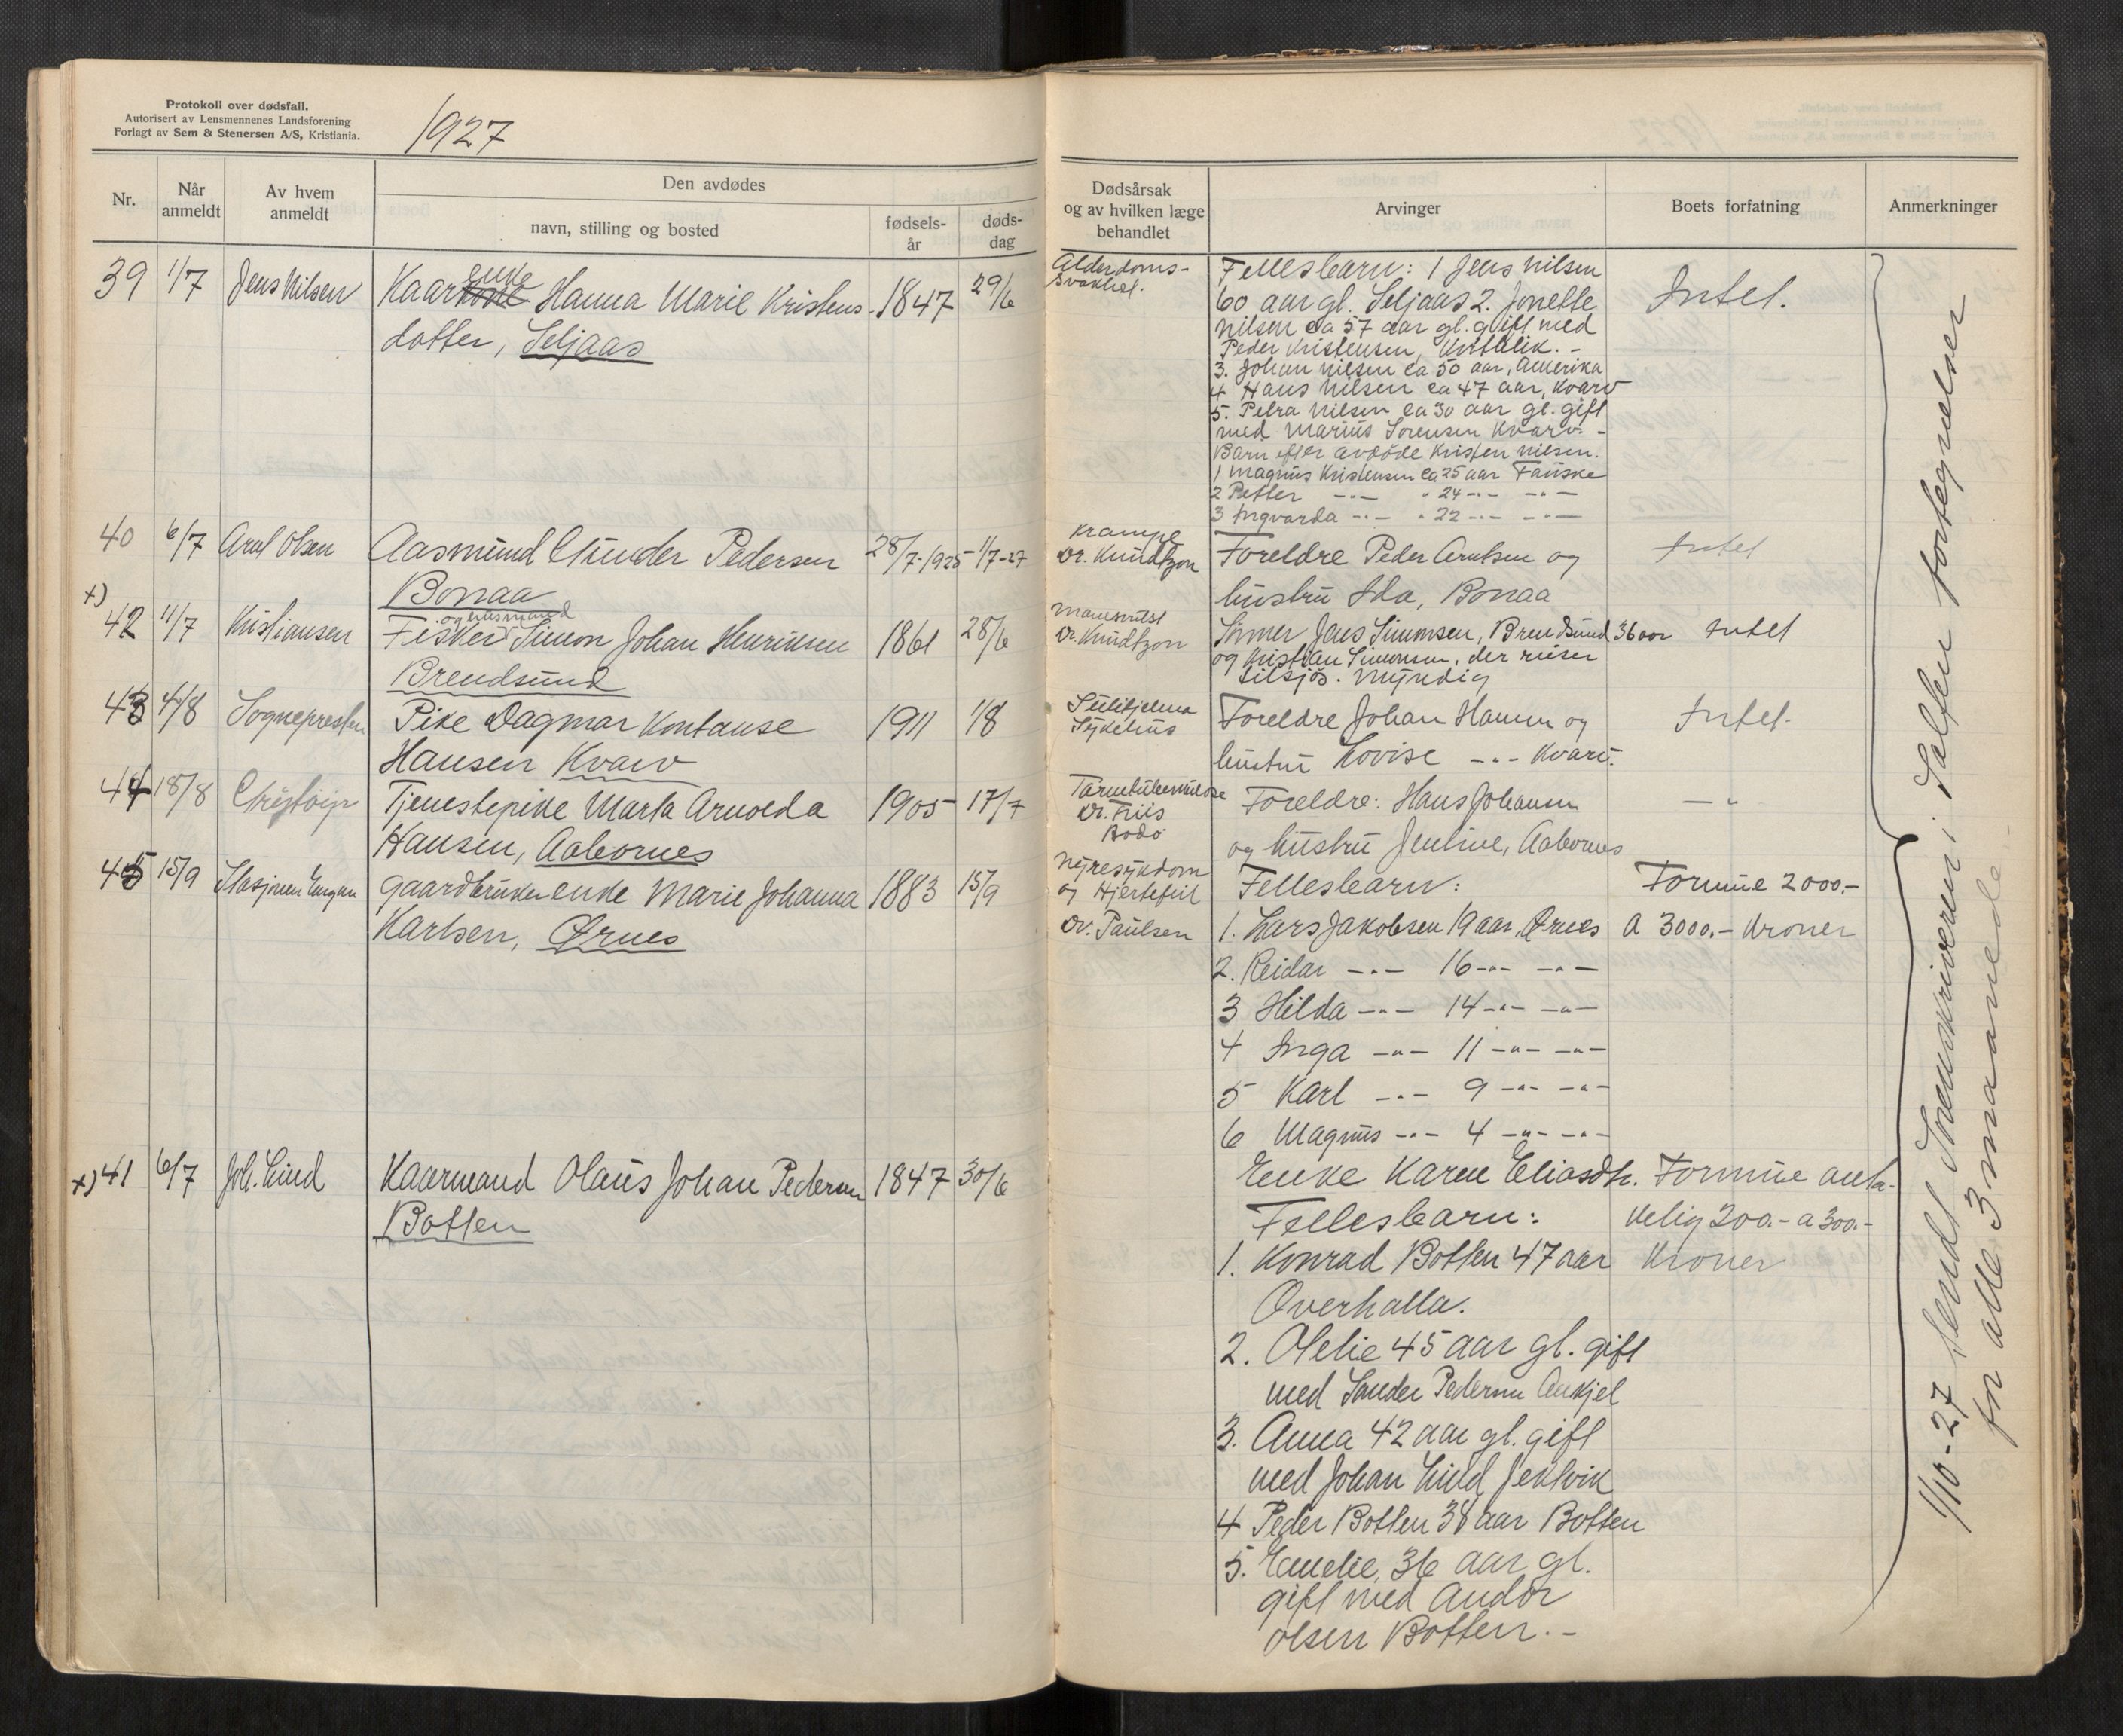 Protokoll over dødsfall.
Autorisert av Lensmennenes Landsforening
Forlagt av Sem & Stenersen A/S, Kristiania.
1927
Nr.
Når anmeldt
Av hvem anmeldt
Den avdødes
navn, stilling og bosted
fødsels-år
døds-dag
Dødsårsak og av hvilken læge behandlet
Arvinger
Boets forfatning
Anmerkninger
39 1/7 Jens Nilsen Kaarenke Hanna Marie Kristens- 1847 29/6
dotter, Seljaas
Alderdoms-
svakhet.
Fellesbarn: 1 Jens Nilsen
60 aar gl. Seljaas 2. Jonette
Nilsen ca 57 aar gl. gift med
Peder Kristensen,
3. Johan Nilsen ca 50 aar, Amerika
4 Hans Nilsen ca 47 aar, Kvarv
5. Petra Nilsen ca 30 aar gl. gift
med Marius Sorensen Kvarv. -
Barn efter avdøde Kristen Nilsen.
1 Magnus Kristensen ca 25 aar Fauske
2 Petter -"- " 24 -"- -"-
3 Ingvarda -"- " 22 -"- -"-
Intet.
40 6/7 Arnt Olsen Aasmund Gunder Pedersen 28/7-1925 1/7-27
Bonaa
Krampe
Dr. Knudtzon
Foreldre Peder Arntsen og
hustru Ida, Bonaa
Intet
x)
42 11/7 Kristiansen Fisker og husmand Simon Johan Henriksen 1861 28/6
Brendsund
Dr. Knudtzon
Sønner Jens Simonsen, Brendsund 36 aar
og Kristian Simonsen, der reiser
tilsjøs. Myndig
Intet
43 4/8 Sognepresten Pike Dagmar Konstanse 1911 1/8
Hansen Kvarv
Sulitjelma
Sykehus
Foreldre Johan Hansen og
hustru Lovise -"- Kvarv.
Intet.
44 18/8 Tjenestepike Marta Arnolda 1905 17/7
Hansen, Aabornes
Tarmtuberkulose
Dr. Friis
Bodø
Foreldre: Hans Johansen
og hustru Jentine, Aabornes
-"-
45 15/9 Stasjonen Engan gaardbrukerenke Marie Johanna 1883 15/9
Karlsen, Ørnes
Nyresykdom
og Hjertefeil
Dr. Paulsen
Fellesbarn:
1. Lars Jakobsen 19 aar, Ørnes
2. Reidar -"- 16 -"- -"-
3 Hilda -"- 14 -"- -"-
4 Inga -"- 11 -"- -"-
5 Karl -"- 9 -"- -"-
6 Magnus -"- 4 -"- -"-
Formue 2000.-
a 3000.- Kroner
x) 41 6/7 Joh. Lind Kaarmand Olaus Johan Pedersen 1847 30/6
Botten
Enke Karen Eliasdtr.
Fellesbarn:
1. Konrad Botten 47 aar
Overhalla.
2. Oletie 45 aar gl. gift
med Sander Pedersen
3. Anna 42 aar gl. gift
med Johan Lind Jektvik
4 Peder Botten 38 aar Botten
5. Emelie, 36 aar gl.
gift med Andor
Olsen Botten. -
Formue anta-
kelig 200.- a 300.-
Kroner
1/10-27 Sendt Sorenskriveren i Salten fortegnelser
for alle 3 maaneder